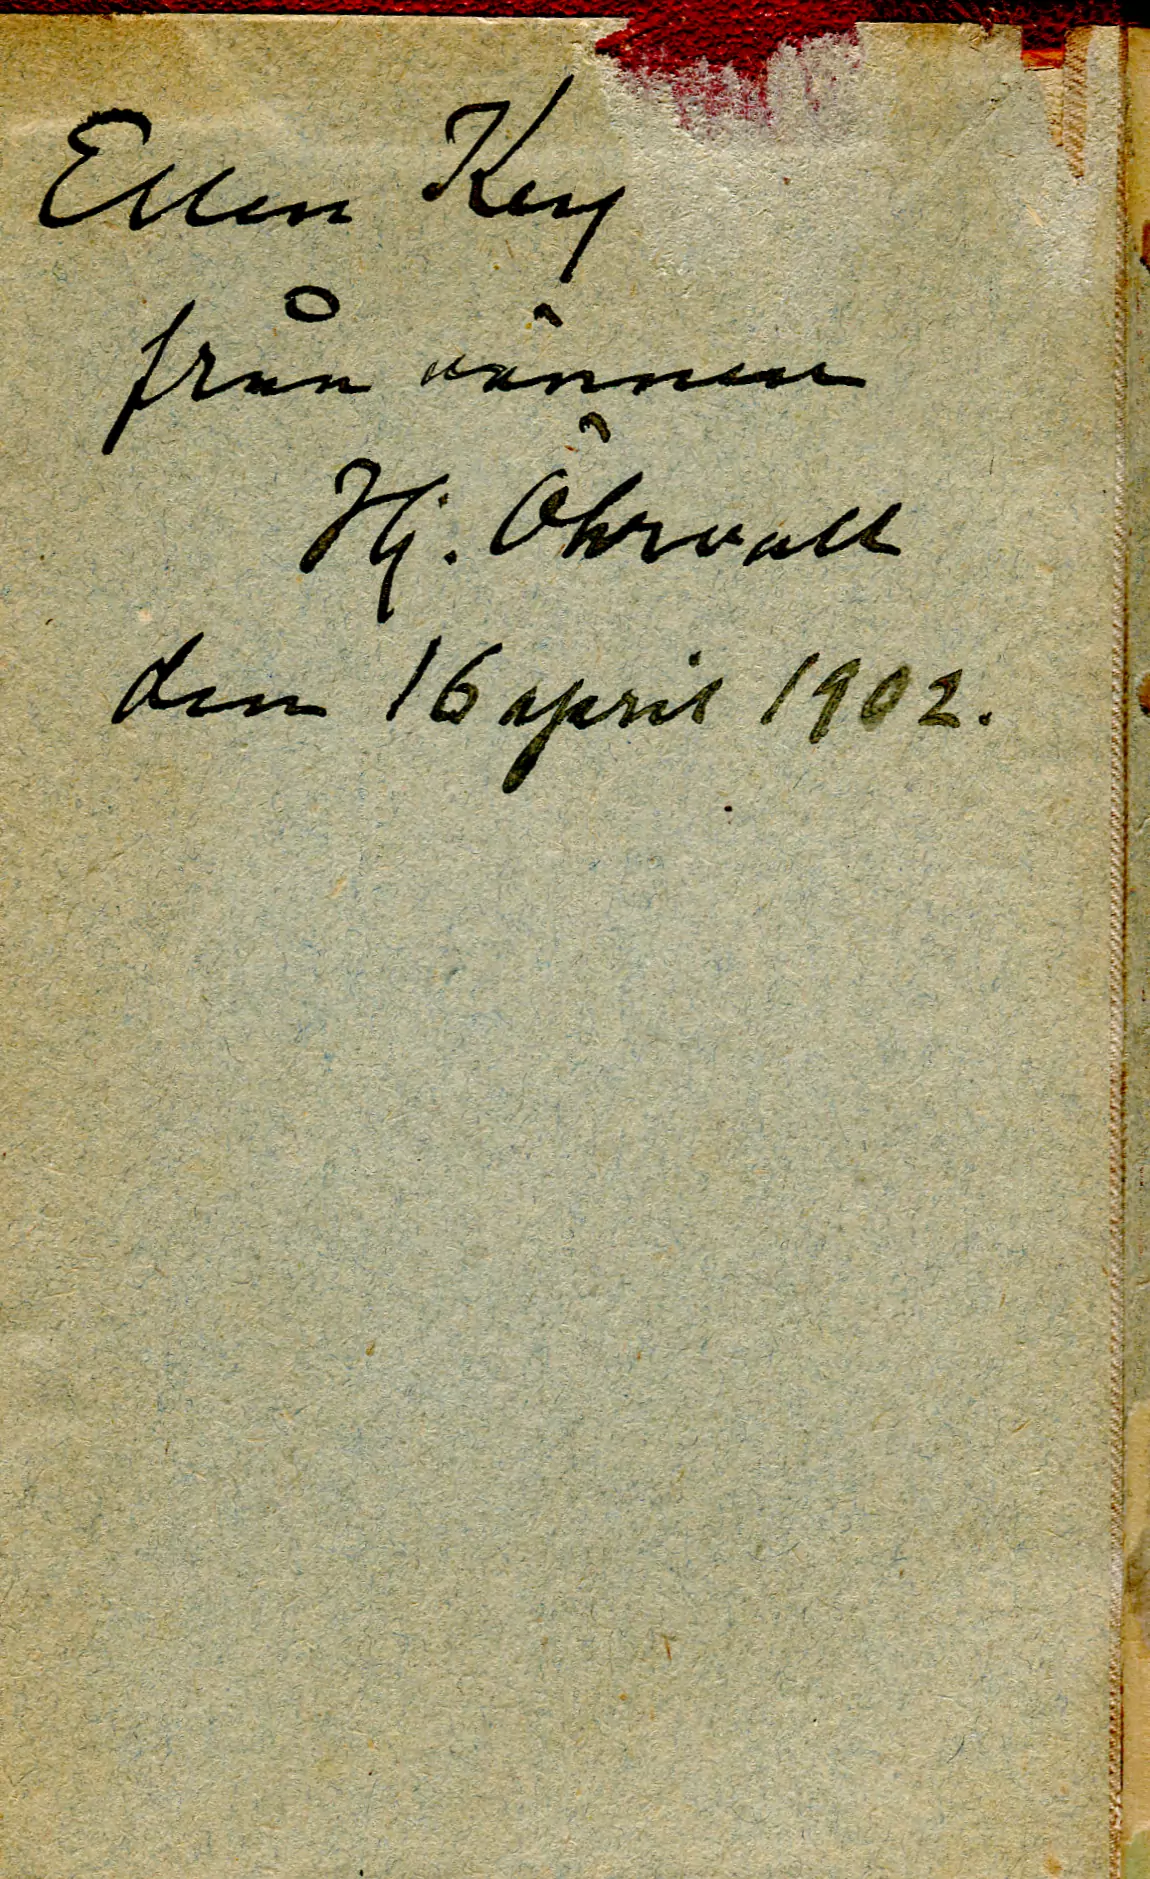 Ellen Key
från vännen
Hj. Öhrvall
den 16 april 1902.